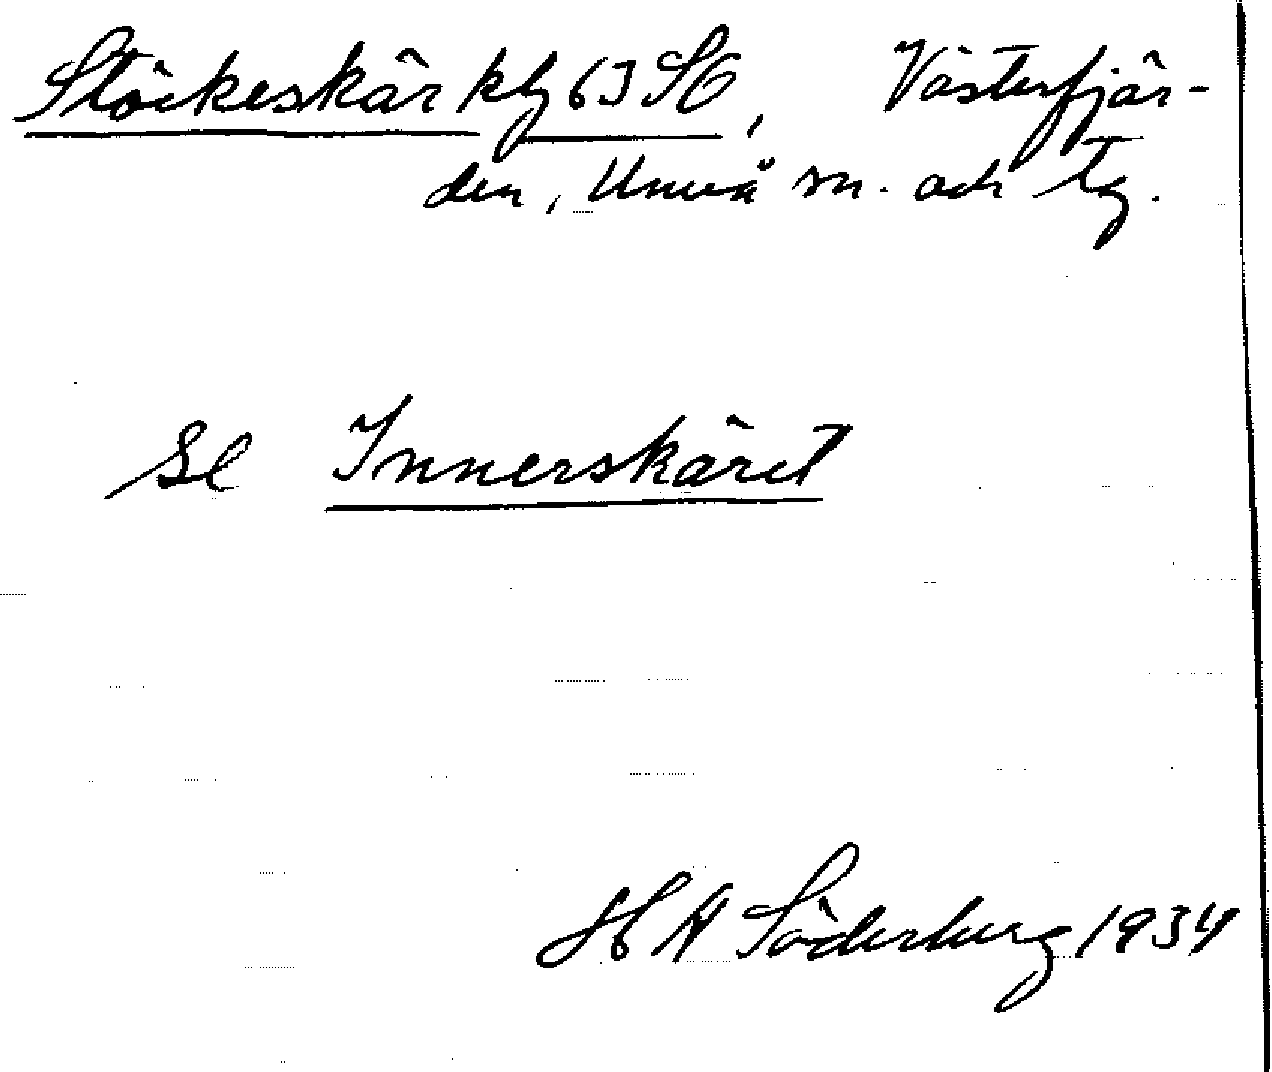 Stöckeskär kbl 63 SO, Västerfjär-
den, Umeå sn. och tg.
se Innerskäret
H A Söderberg 1934